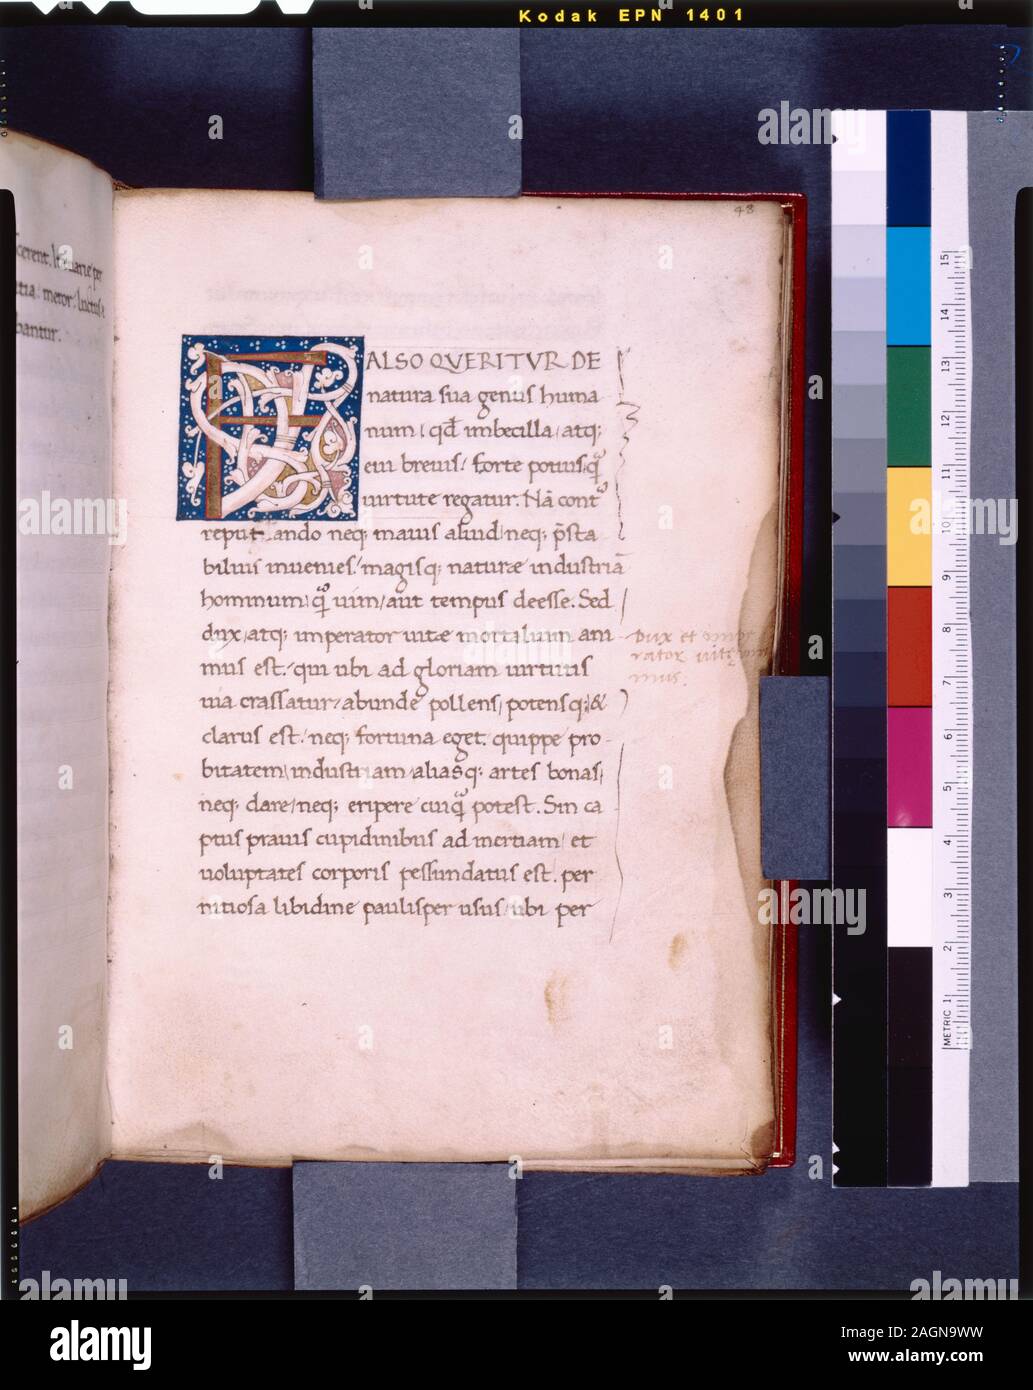 Kodak EPN 1401
48
cerent. It
tia: meror, luctus
bantur.
FALSO QVERITVR DE
natura sua genus huma
num, qd̄ imbecilla, atq;
eui breuis, forte potius, q̄
uirtute regatur. Nā cont
reputando neq; maius aliud, neq; p̄sta
bilius inuenies, magisq; naturæ industriā
hominum, q̄ uim, aut tempus deesse. Sed
dux, atq; imperator uitæ mortalium ani
mus est, qui ubi ad gloriam uirtutis
uia crassatur, abunde pollens, potensq;, &
clarus est, neq; fortuna eget. quippe pro
bitatem, industriam, aliasq; artes bonas,
neq; dare, neq; eripere cuiq̄ potest. Sin ca
ptus prauis cupidinibus ad inertiam, et
uoluptates corporis pessundatus est. per
nitiosa libidine paulisper usus, ubi per
Dux et
rator uitę
mus.
15
14
13
12
11
10
9
8
7
6
5
4
3
2
METRIC 1
alamy
Image ID: 2AGN9WW
www.alamy.com